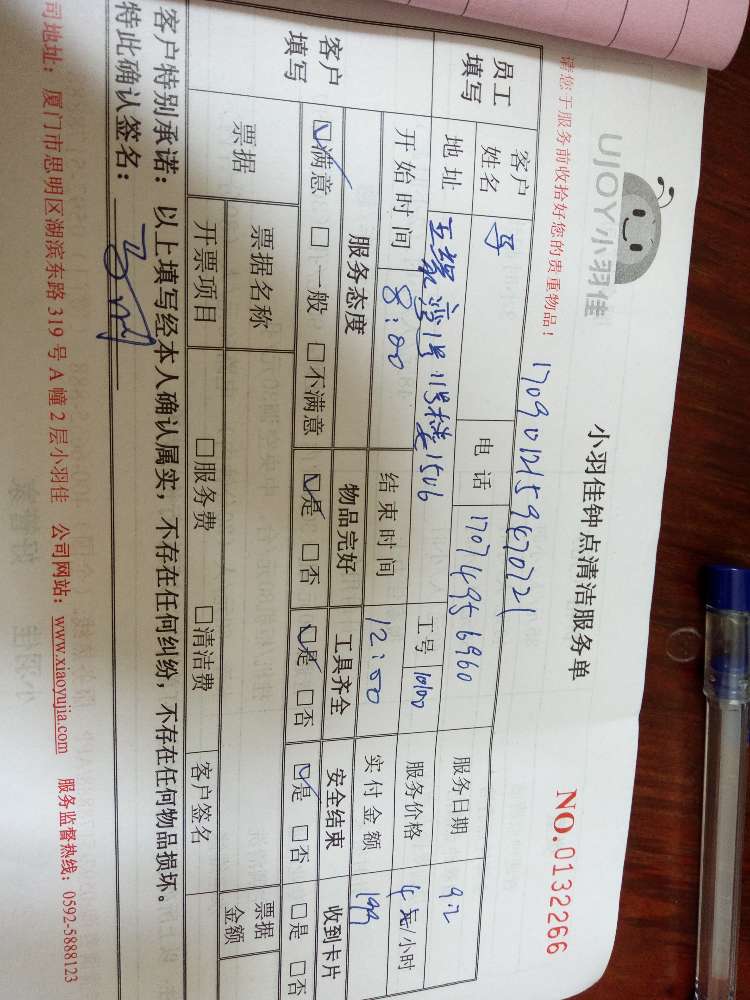 UJOY小羽佳
小羽佳钟点清洁服务单
NO.0132266
请您于服务前收拾好您的贵重物品！
1709012159470721
员工填写 客户姓名 电话 17074956960 服务日期 9.2
地址 五缘湾1号11号楼1506 工号 服务价格 元/小时
开始时间 8:00 结束时间 12:00 实付金额 199
客户填写 服务态度 物品完好 工具齐全 安全结束 收到卡片
☑满意 □一般 □不满意 ☑是 □否 ☑是 □否 ☑是 □否 □是 □否
票据 票据名称 票据金额
开票项目 □服务费 □清洁费 客户签名
客户特别承诺：以上填写经本人确认属实，不存在任何纠纷，不存在任何物品损坏。
特此确认签名：
司地址：厦门市思明区湖滨东路319号A幢2层小羽佳 公司网站：www.xiaoyujia.com 服务监督热线：0592-5888123